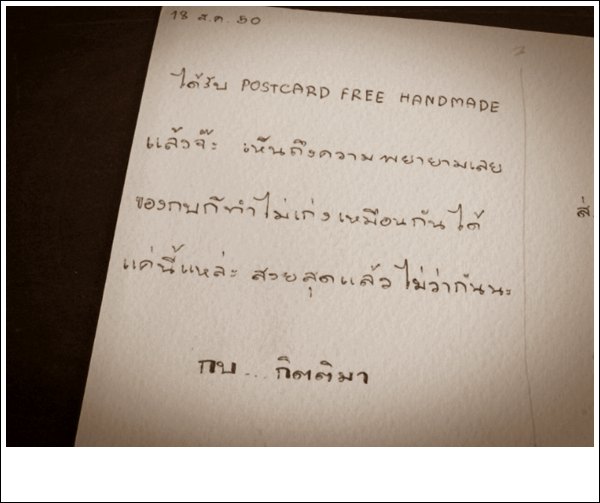 18 ส.ค. 50
ได้รับ POSTCARD FREE HANDMADE
แล้วจ๊ะ เห็นถึงความพยายามเลย
ของกบก็ทำไม่เก่งเหมือนกันได้
แค่นี้แหล่ะ สวยสุดแล้วไม่ว่ากันนะ
ส่
กบ... กิตติมา